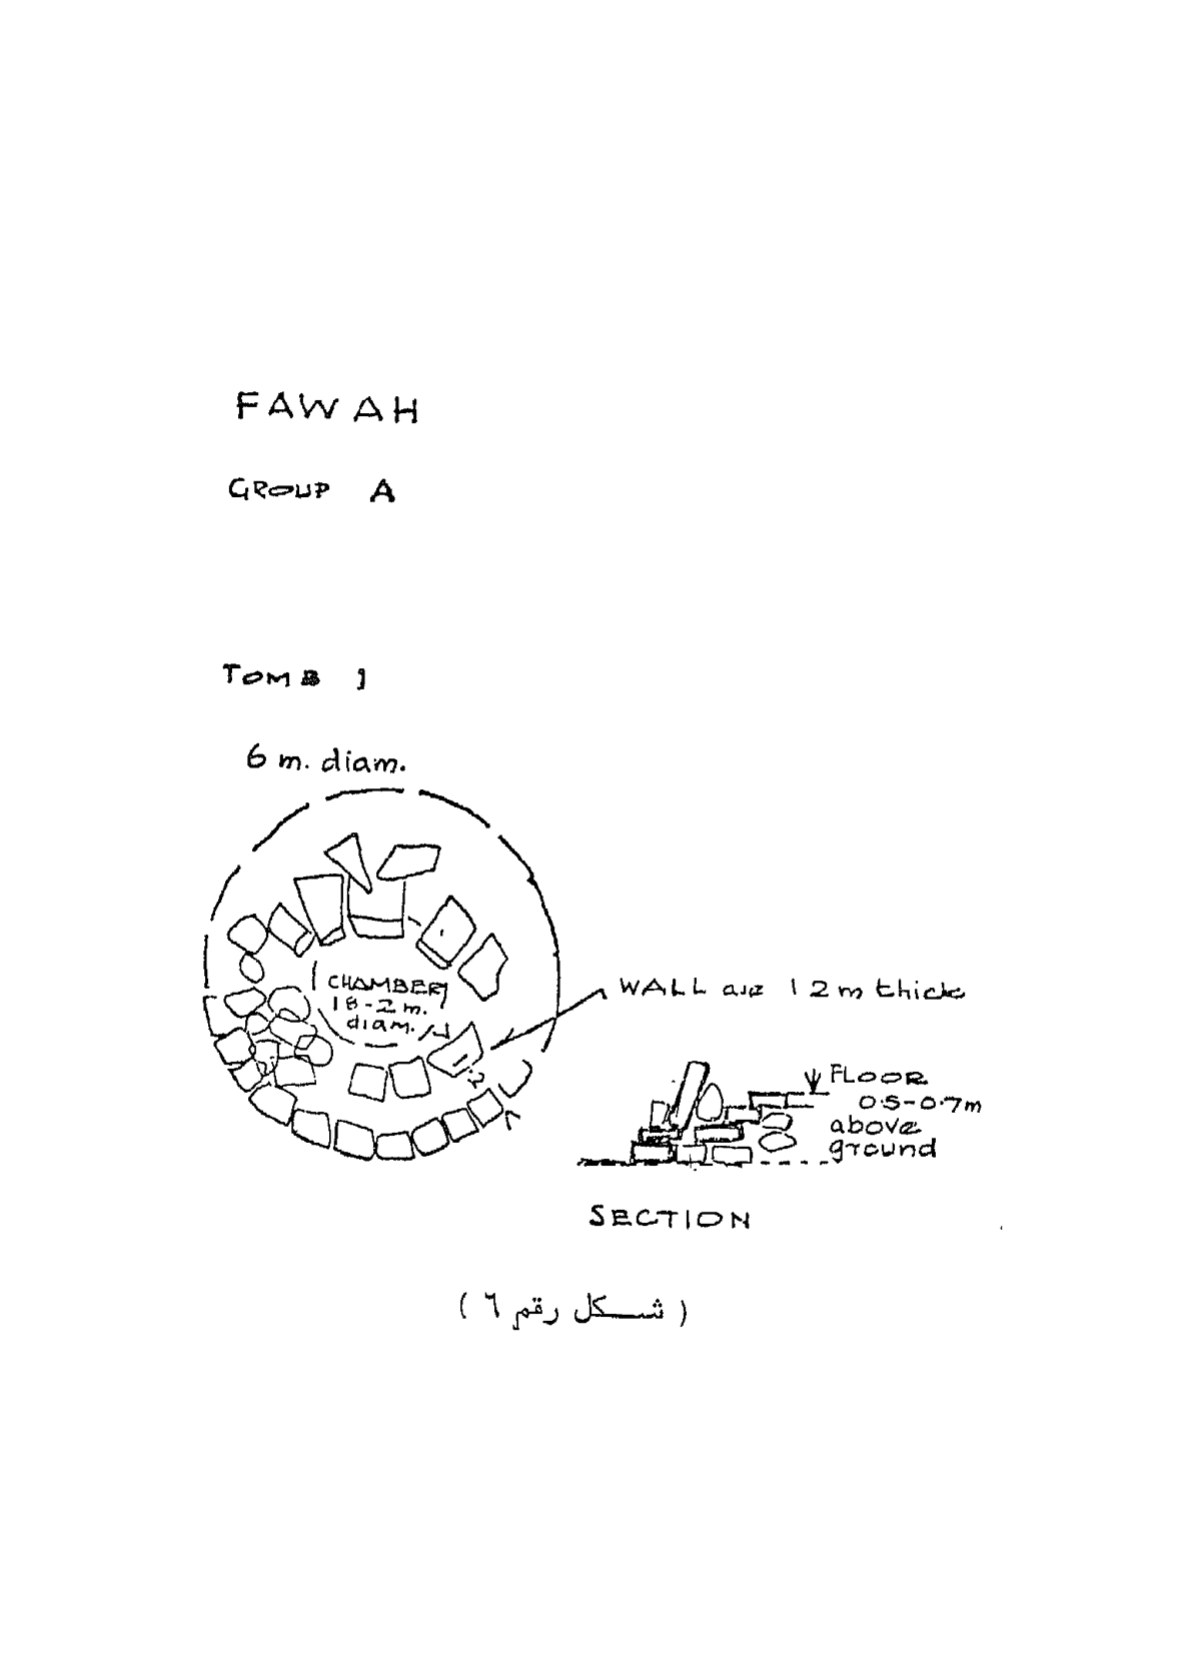 FAWAH
GROUP A
TOMB 1
6 m. diam.
CHAMBER
18-2m.
diam.
WALL are 12m thick
.2
FLOOR
0.5-0.7m
above
ground
SECTION
( شكل رقم ٦ )